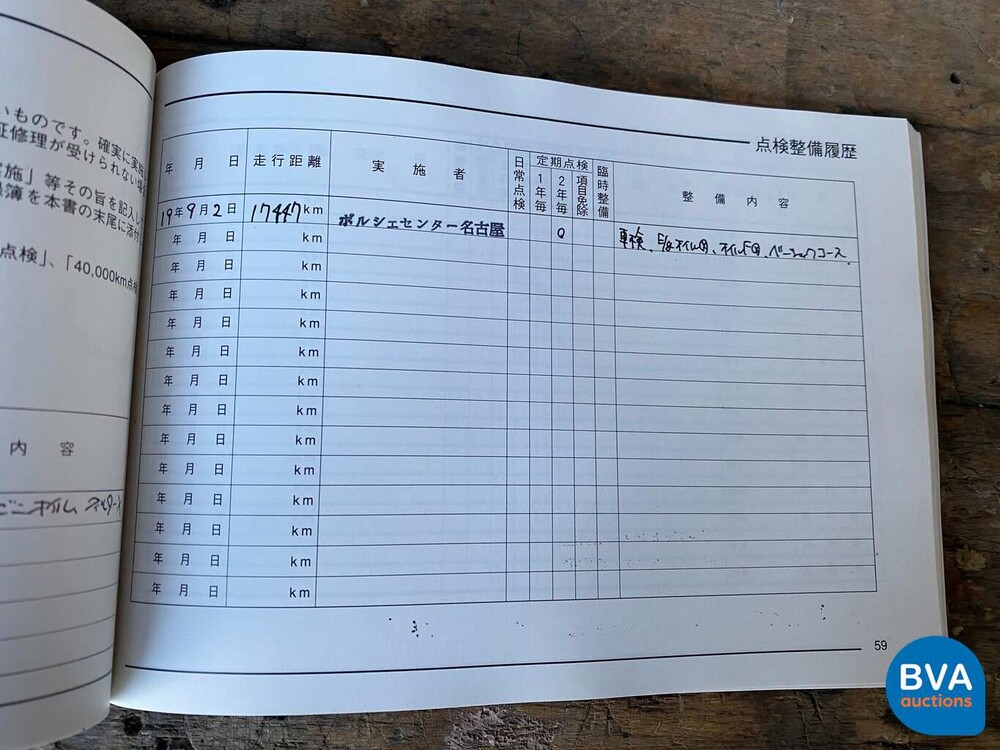 いものです。確実に実施
証修理が受けられない場合
実施」等その旨を記入し
録簿を本書の末尾に添付し
点検」、「40,000km点検
内 容
オイル
点検整備履歴
年 月 日 走行距離 実 施 者 日常点検 定期点検 1年毎 2年毎 項目免除 臨時整備 整 備 内 容
19年9月2日 17447km ポルシェセンター名古屋 O 車検、オイル オイル ベーシックコース
年 月 日 km
年 月 日 km
年 月 日 km
年 月 日 km
年 月 日 km
年 月 日 km
年 月 日 km
年 月 日 km
年 月 日 km
年 月 日 km
年 月 日 km
年 月 日 km
年 月 日 km
59
BVA
auctions